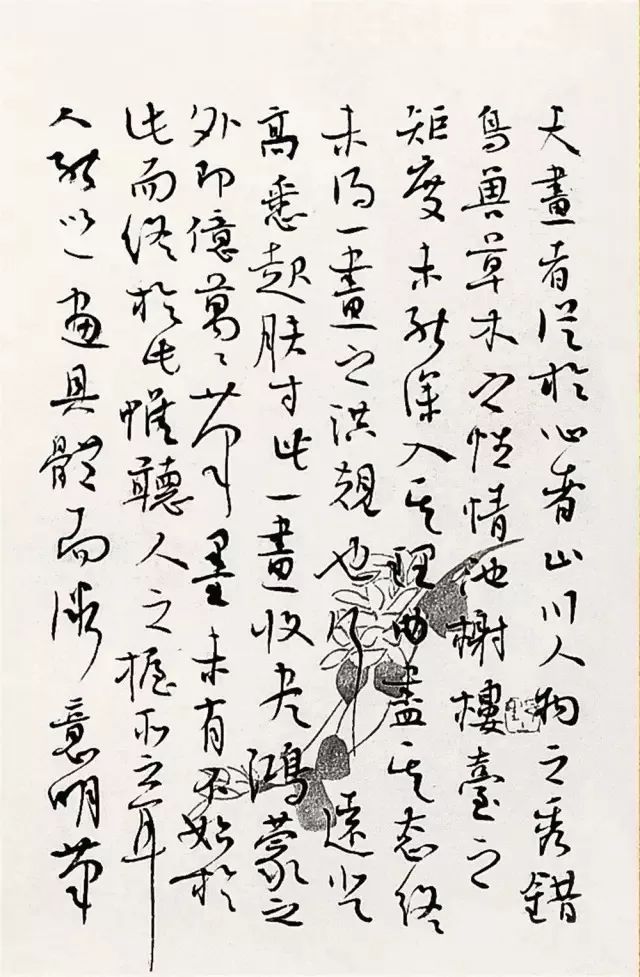 夫畫者從於心者山川人物之秀錯
鳥獸草木之性情池榭樓臺之
矩度未能深入其理曲盡其态終
未得一畫之洪規也行遠登
高悉起膚寸此一畫收盡鴻蒙之
外即億萬〻筆墨未有不始於
此而終於此惟聽人之握取之耳
人能以一畫具體而微意明筆